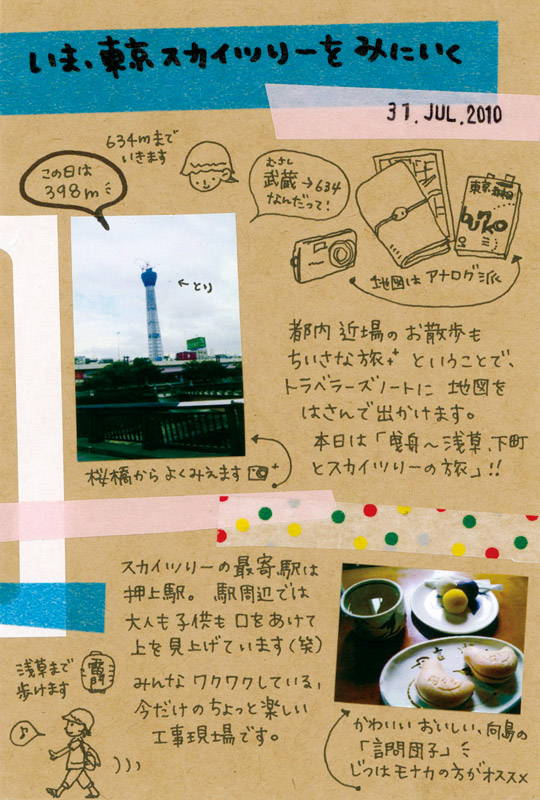 いま、東京スカイツリーを みにいく
31. JUL. 2010
634mまで
いきます
この日は
398m
むさし
武蔵→634
なんだって!
東京
地図は アナログ派
←とり
都内 近場の お散歩も
ちいさな旅 ということで、
トラベラーズノートに 地図を
はさんで出かけます。
本日は「曳舟〜浅草、下町
とスカイツリーの旅」!!
桜橋から よくみえます
スカイツリーの 最寄駅は
押上駅。 駅周辺では
大人も子供も 口をあけて
上を見上げています(笑)
みんな ワクワクしている、
今だけの ちょっと楽しい
工事現場です。
浅草まで
歩けます
かわいい おいしい、向島の
「言問団子」
じつは モナカの方が オススメ